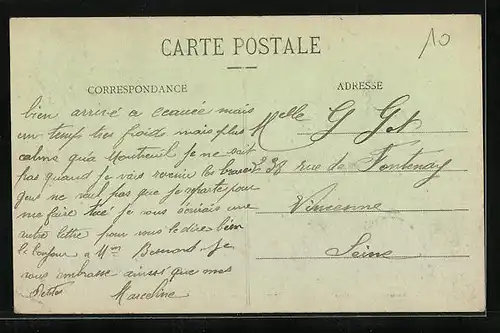 10
CARTE POSTALE
CORRESPONDANCE
ADRESSE
bien arrivé a ceaucé mais
un temps tres froid mais plus
calme qu'a Montreuil je ne sait
pas quand je vais revenir les braves
gens ne veul pas que je reparte pour
me faire tuée je vous écrirais une
autre lettre pour vous le dire bien
le bonjour a Mme Besnard je
vous embrasse ainsi que mes
Petites Marceline
Melle G Got
238 rue de Fontenay
Vincenne
Seine